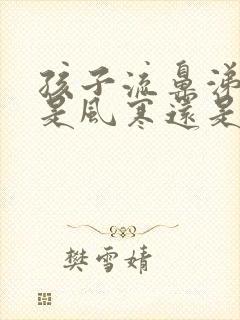 孩子流鼻涕
是風寒還是
樊雪婧